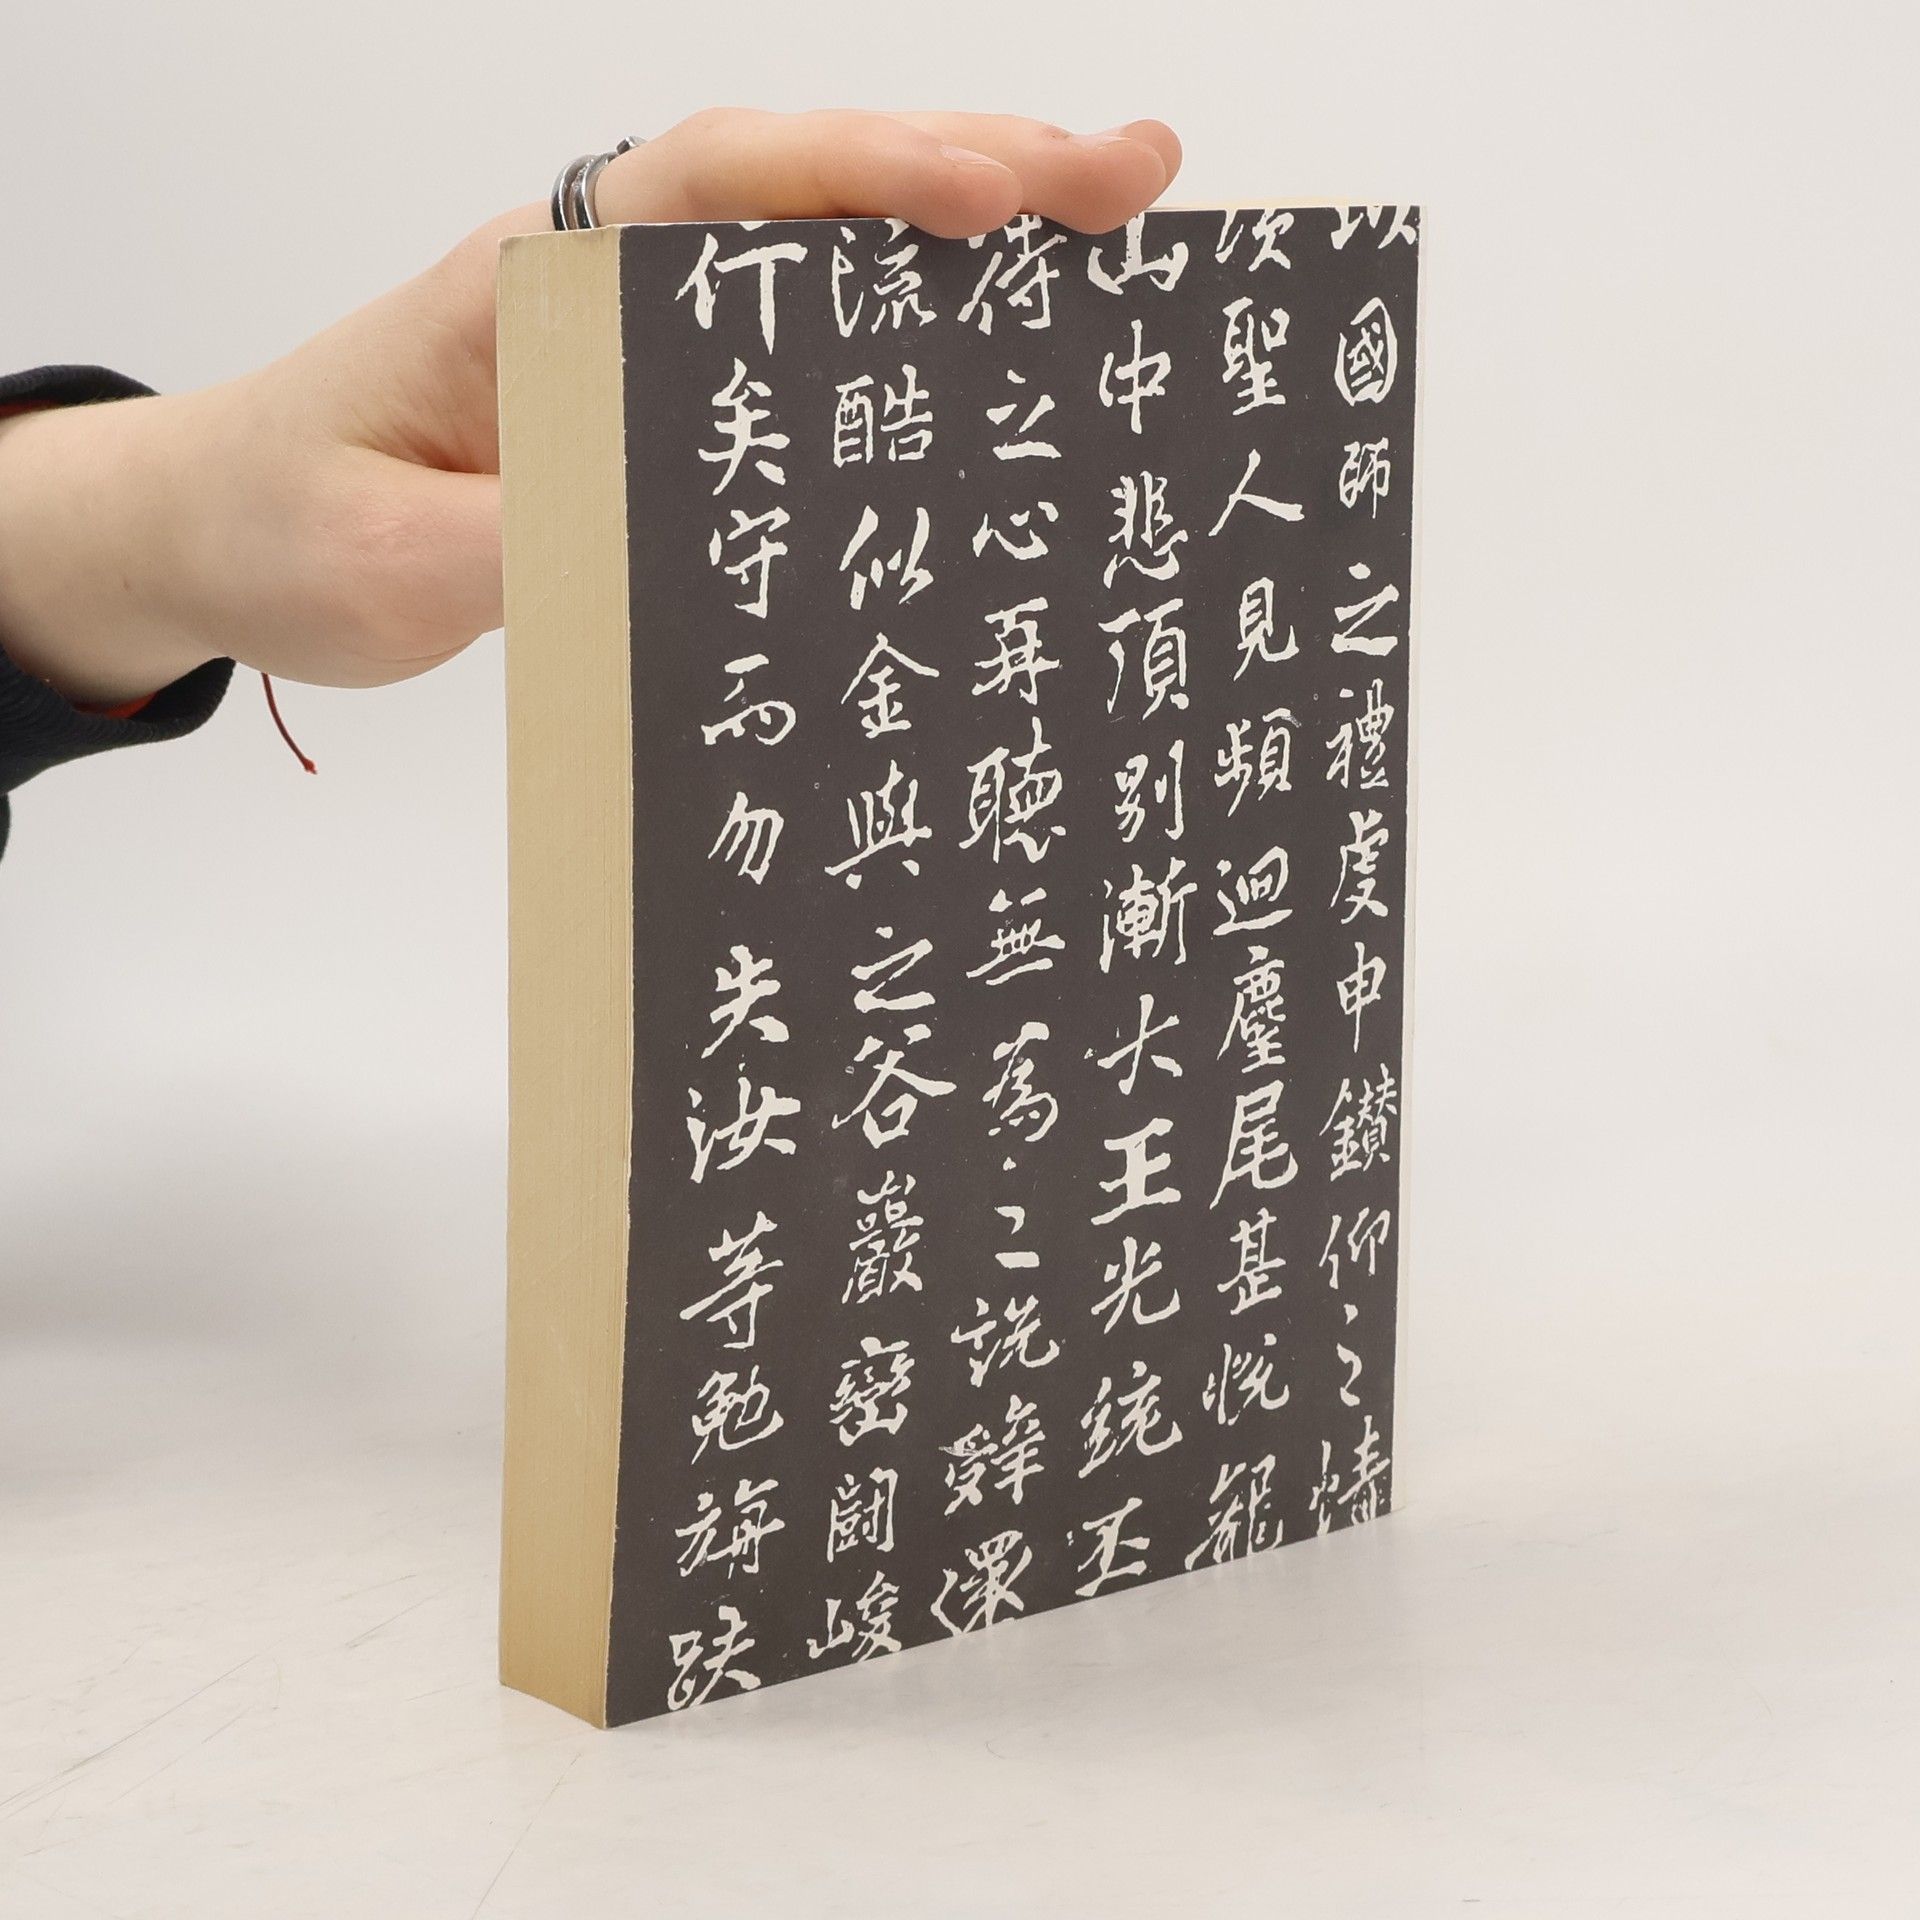 國師之禮虔申鑽仰之情
聖人見頻迴麈尾甚悅龍
山中悲頂別漸大王光統丕
待之心再聽無為之說辭還
流酷似金與之谷巖巒鬪峻
行矣守而勿失汝等勉旃跌